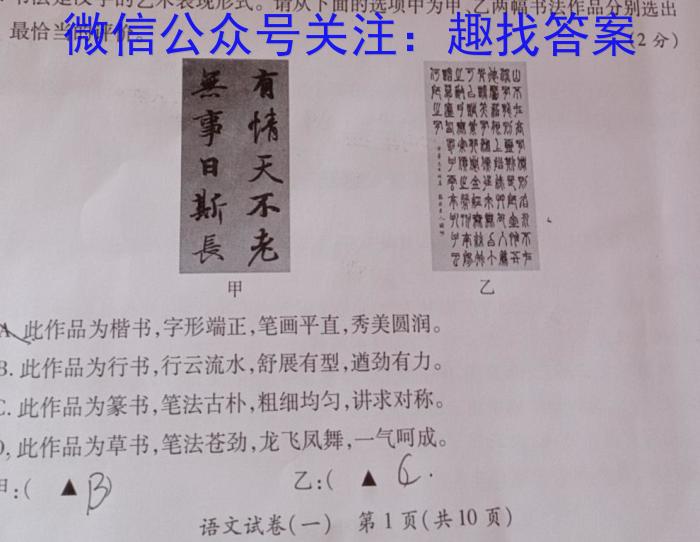 书法是汉字的艺术表现形式。请从下面的选项中为甲、乙两幅书法作品分别选出
最恰当的评价。
(2分)
微信公众号关注：趣找答案
有情天不老
無事日斯長
甲
乙
A. 此作品为楷书,字形端正,笔画平直,秀美圆润。
B. 此作品为行书,行云流水,舒展有型,遒劲有力。
C. 此作品为篆书,笔法古朴,粗细均匀,讲求对称。
D. 此作品为草书,笔法苍劲,龙飞凤舞,一气呵成。
甲:( ▲ B
乙:( ▲ C .
语文试卷(一) 第1页(共10页)